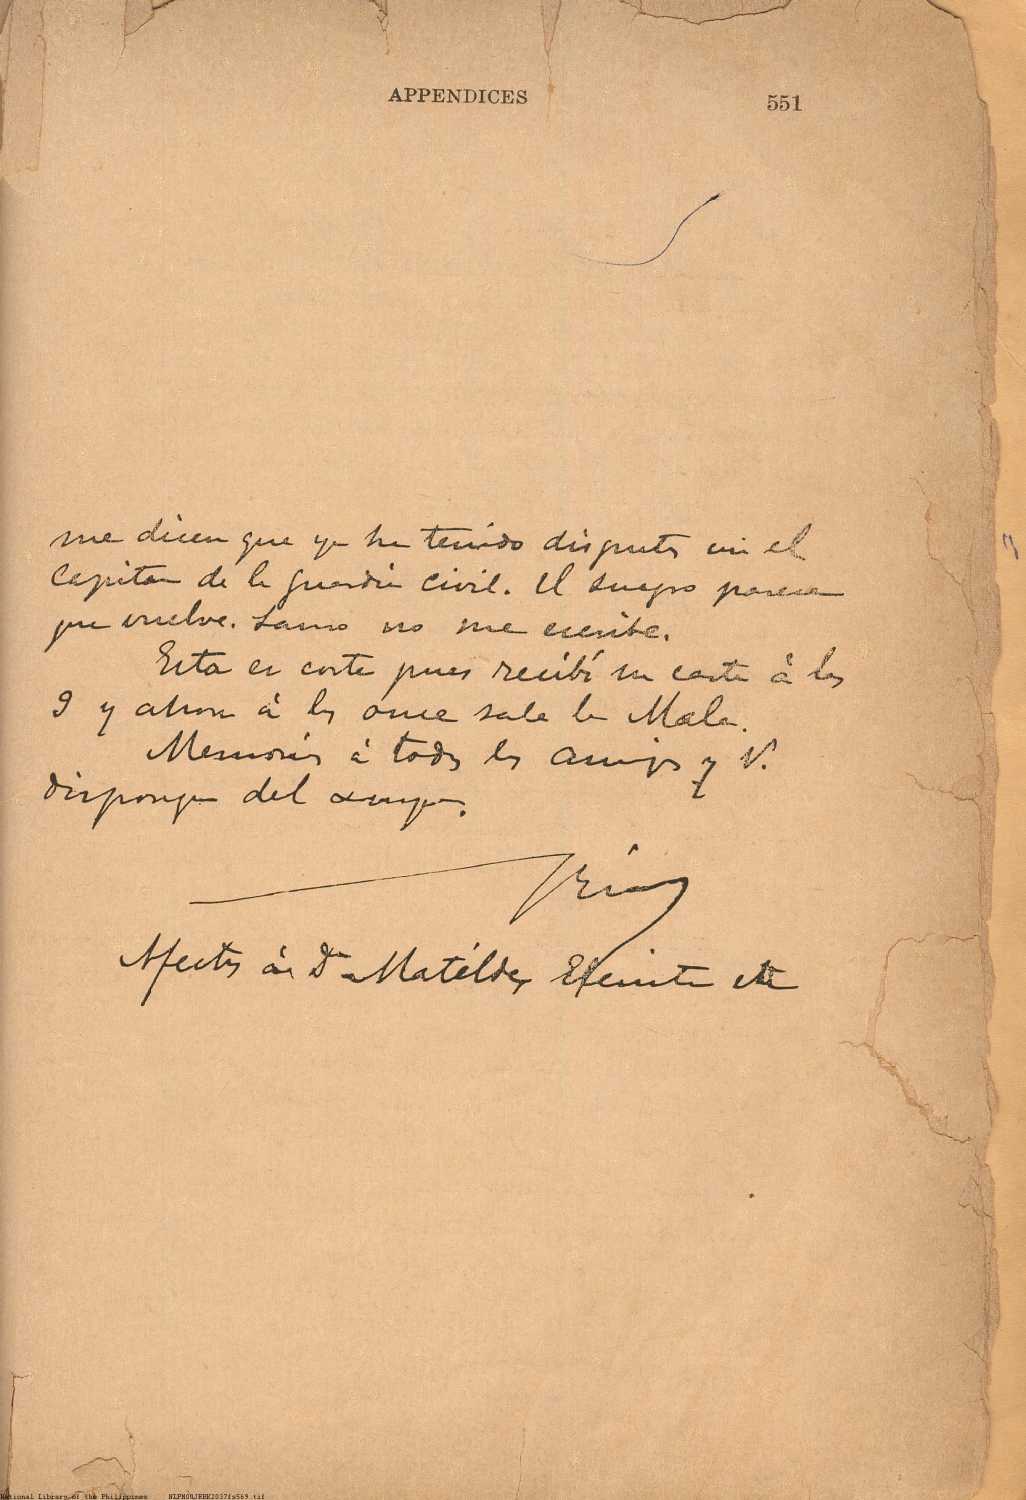 APPENDICES 551
me dicen que ya ha tenido disputas con el
capitan de la guardia civil. El suegro parece
que vuelve. no me escribe.
Esta es corta pues recibí su carta á las
9 y ahora á las once sale la Mala.
Memorias á todos los amigos y V.
disponga del
Afectos á Dª Matilde, etc
National Library of the Philippines